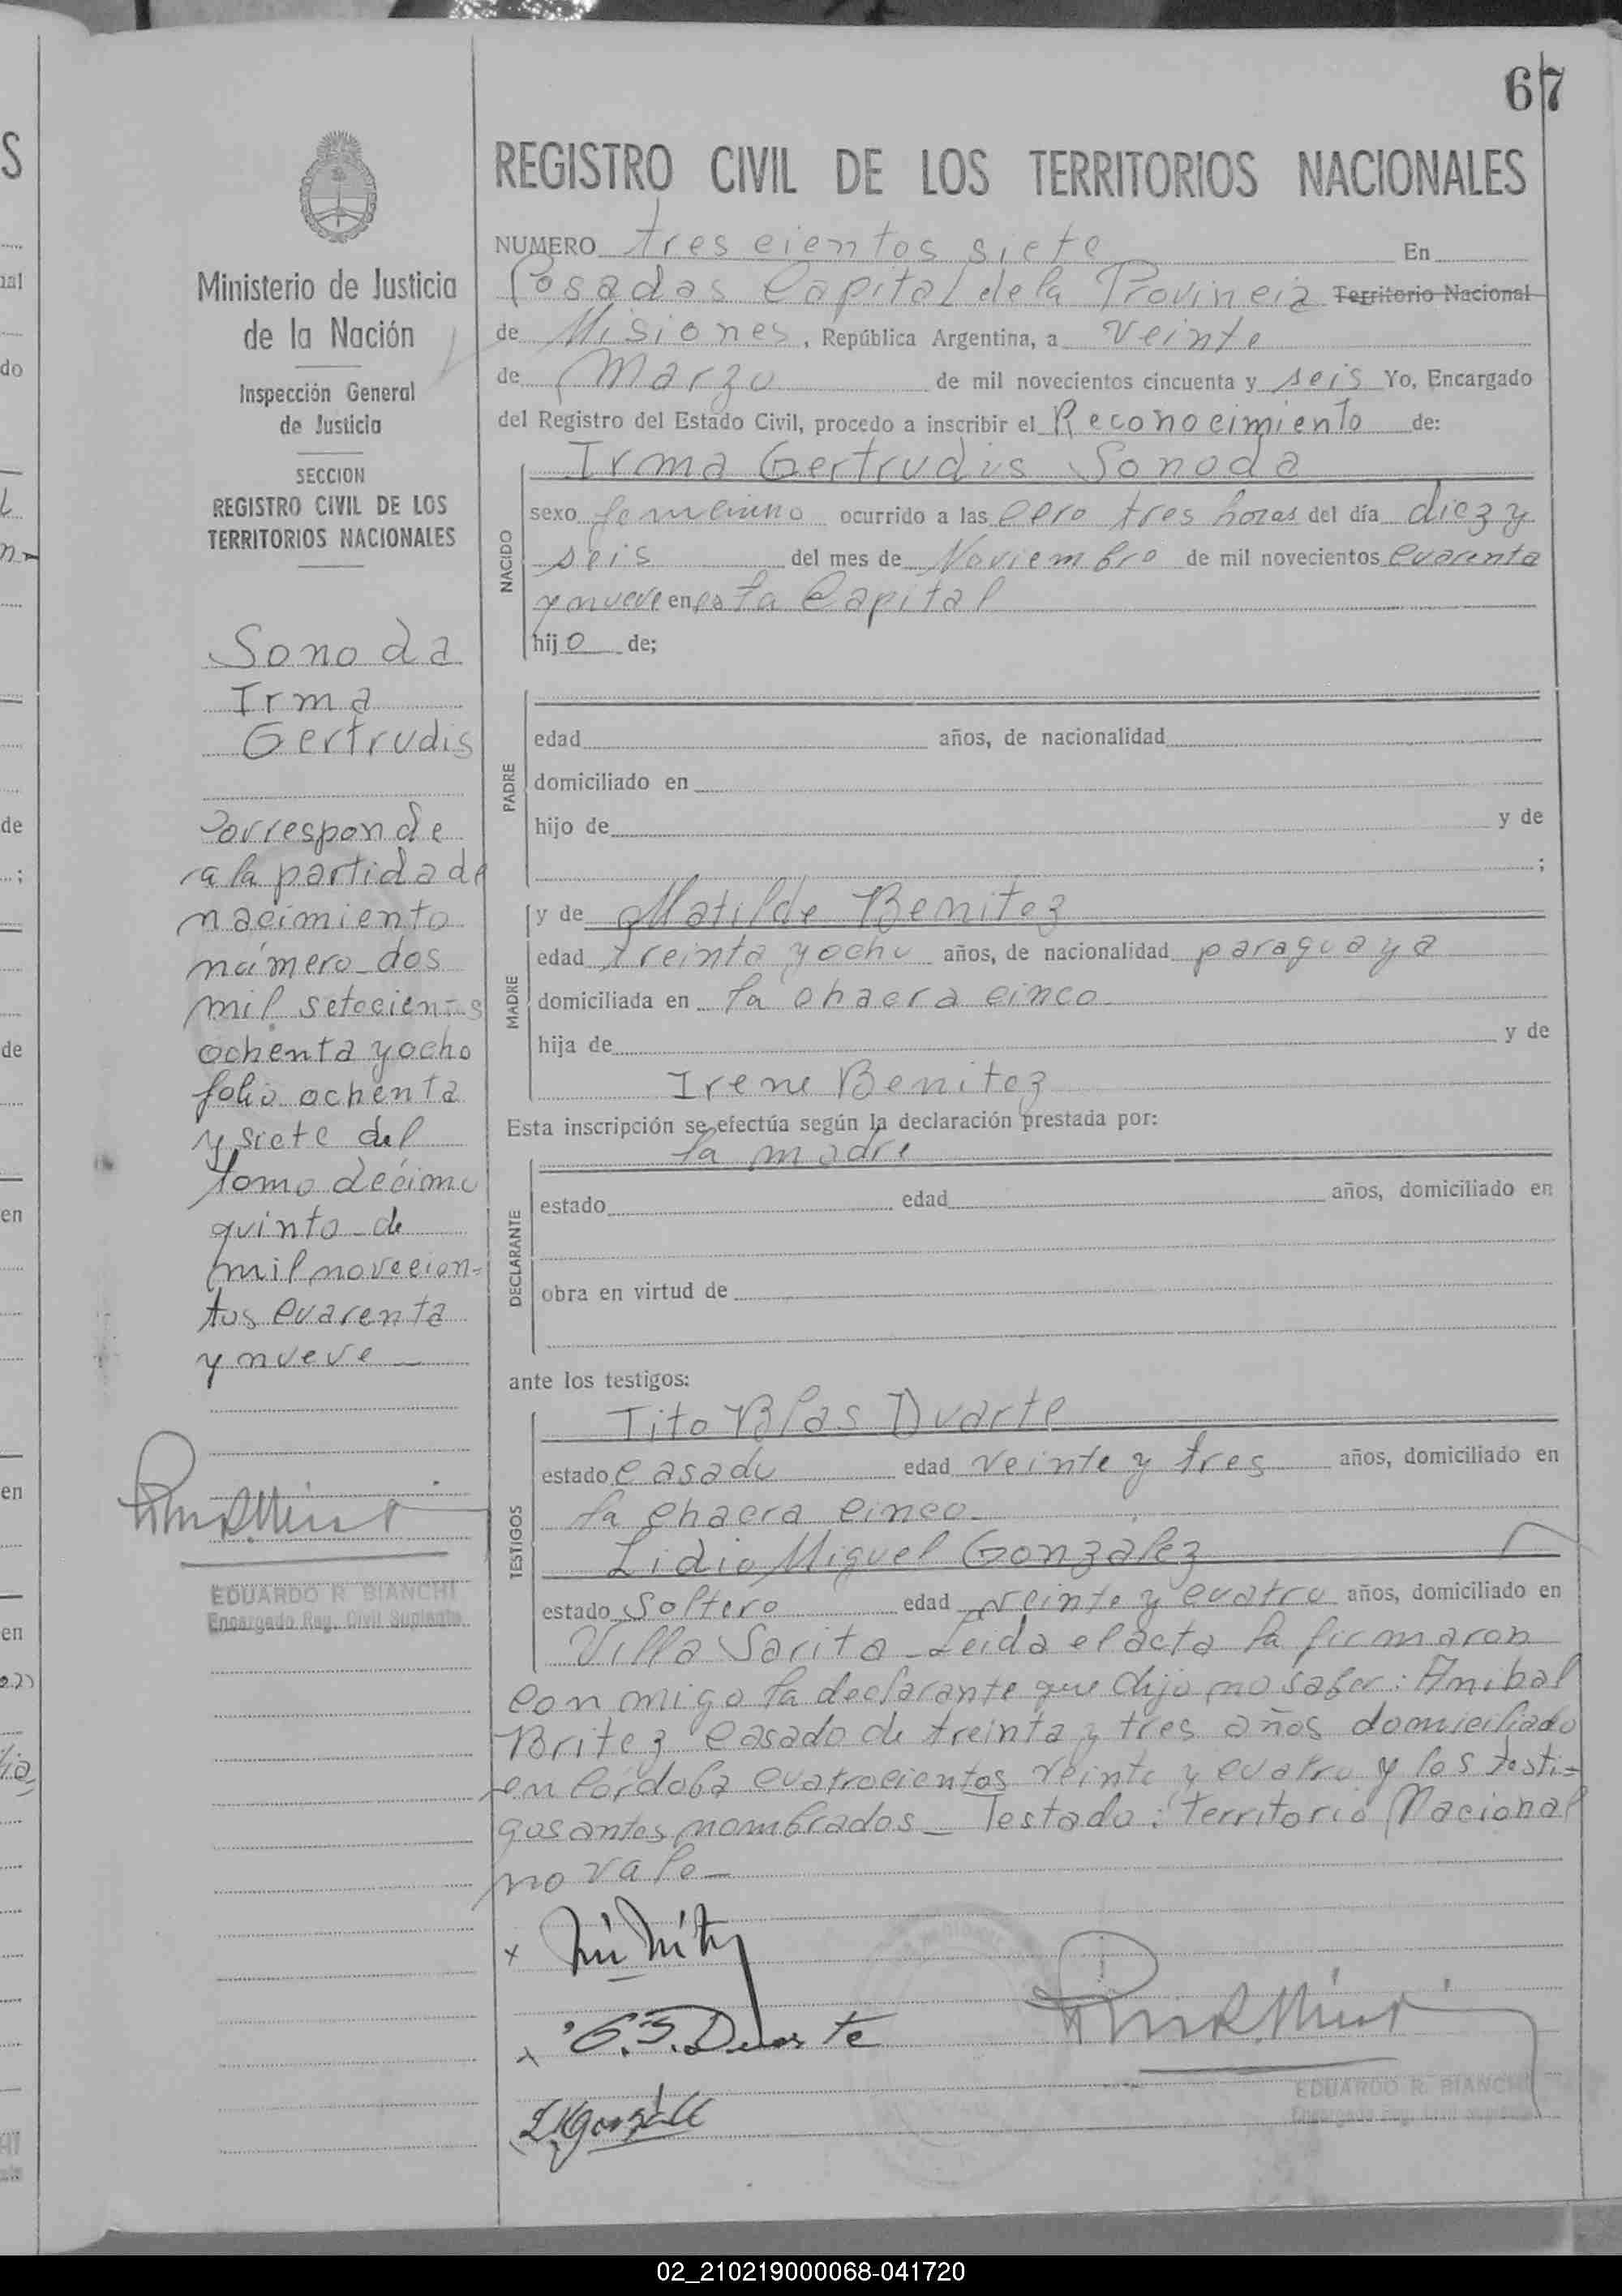 67
REGISTRO CIVIL DE LOS TERRITORIOS NACIONALES
Ministerio de Justicia
de la Nación
Inspección General
de Justicia
SECCION
REGISTRO CIVIL DE LOS
TERRITORIOS NACIONALES
Sonoda
Irma
Gertrudis
Corresponde
a la partida de
nacimiento
número dos
mil setecientos
ochenta y ocho
folio ochenta
y siete del
tomo décimo
quinto de
mil novecien-
tos cuarenta
y nueve
EDUARDO R. BIANCHI
Encargado Reg. Civil Suplente
NUMERO tres cientos siete En
Posadas Capital de la Provincia Territorio Nacional
de Misiones, República Argentina, a veinte
de Marzo de mil novecientos cincuenta y seis Yo, Encargado
del Registro del Estado Civil, procedo a inscribir el Reconocimiento de:
NACIDO
Irma Gertrudis Sonoda
sexo femenino ocurrido a las cero tres horas del día diez y
seis del mes de Noviembre de mil novecientos cuarenta
y nueve en esta Capital
hijo de;
PADRE
edad años, de nacionalidad
domiciliado en
hijo de y de
;
MADRE
y de Matilde Benitez
edad treinta y ocho años, de nacionalidad paraguaya
domiciliada en la chacra cinco
hija de y de
Irene Benitez
Esta inscripción se efectúa según la declaración prestada por:
DECLARANTE
la madre
estado edad años, domiciliado en
obra en virtud de
ante los testigos:
TESTIGOS
Tito Blas Duarte
estado casado edad veinte y tres años, domiciliado en
la chacra cinco
Lidio Miguel González
estado Soltero edad veinte y cuatro años, domiciliado en
Villa Sarita - Leida el acta la firmaron
con migo la declarante que dijo no saber: Anibal
Britez casado de treinta y tres años domiciliado
en Córdoba cuatrocientos veinte y cuatro y los testi-
gos antes nombrados - Testado: Territorio Nacional
no vale -
Duarte
EDUARDO R. BIANCHI
Encargado Reg. Civil Suplente
02_210219000068-041720